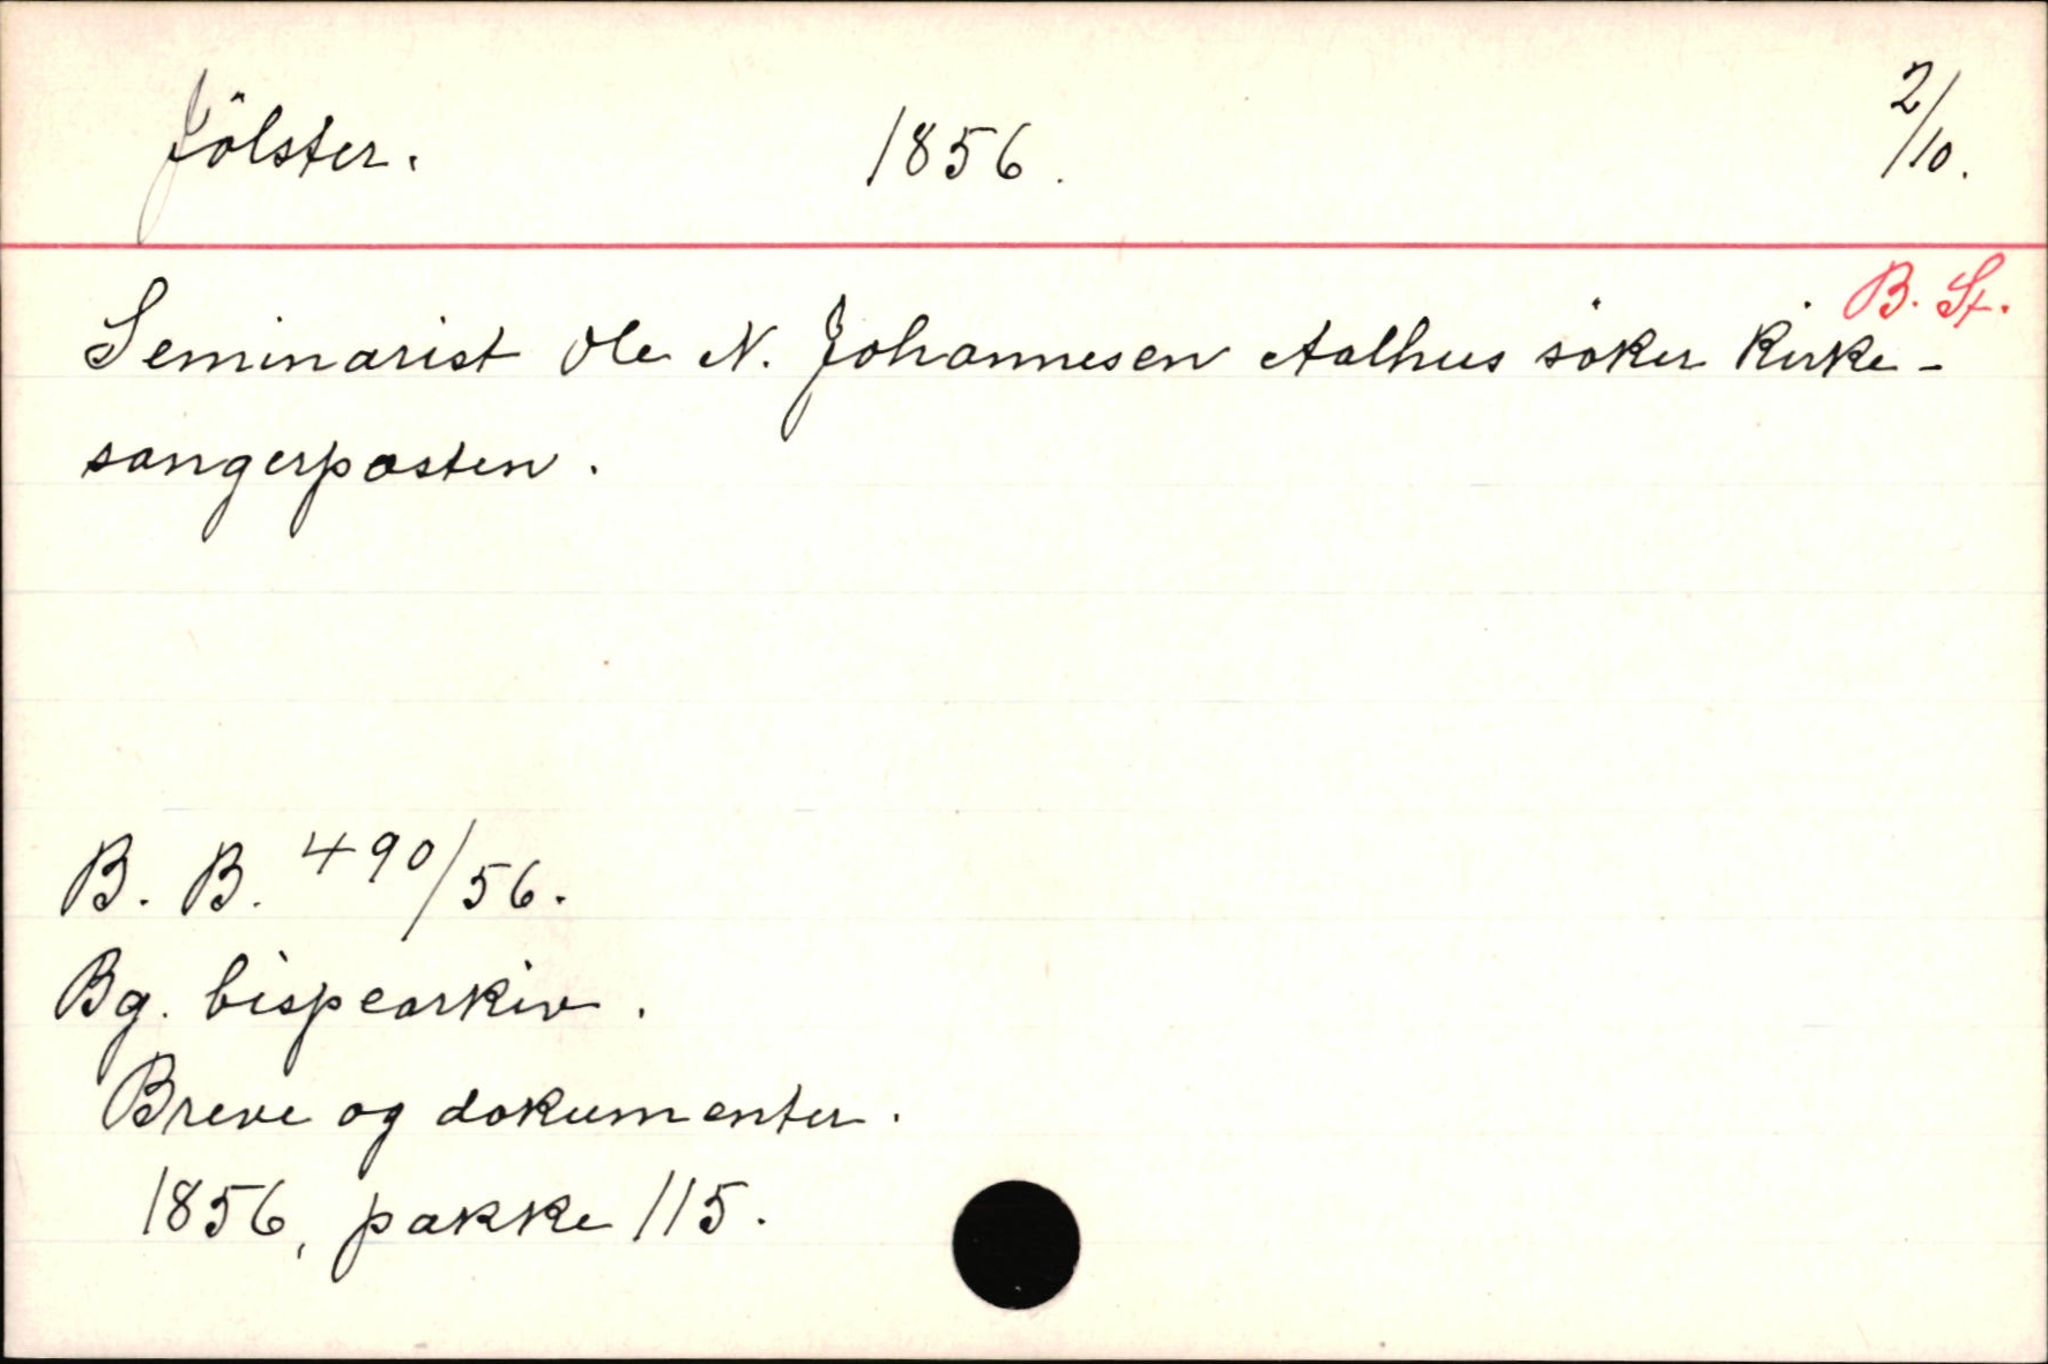 Jölster. 1856. 2/10.
B. St.
Seminarist Ole N. Johannesen Aalhus söker kirke-
sangerposten.
B. B. 490/56.
Bg. bispearkiv.
Breve og dokumenter.
1856, pakke 115.